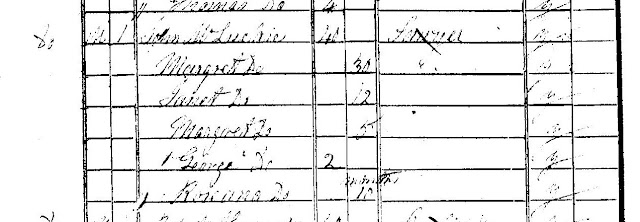 " Thomas Do 4 y
Do 1 John McLuckie 40 y
Margret Do 30 " y
Janet Do 12 y
Margret Do 5 y
1 George Do 2 y
1 Roxcana Do months 10 y
Do